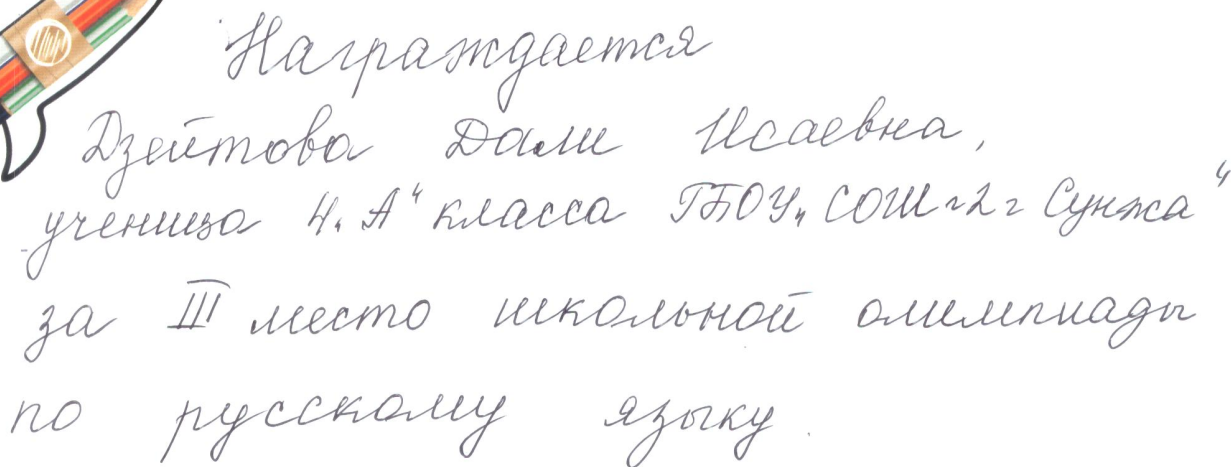 Награждается
Дзейтова Дали Исаевна,
ученица 4 „А“ класса ГБОУ „СОШ-2 г Сунжа“
за III место школьной олимпиады
по русскому языку.